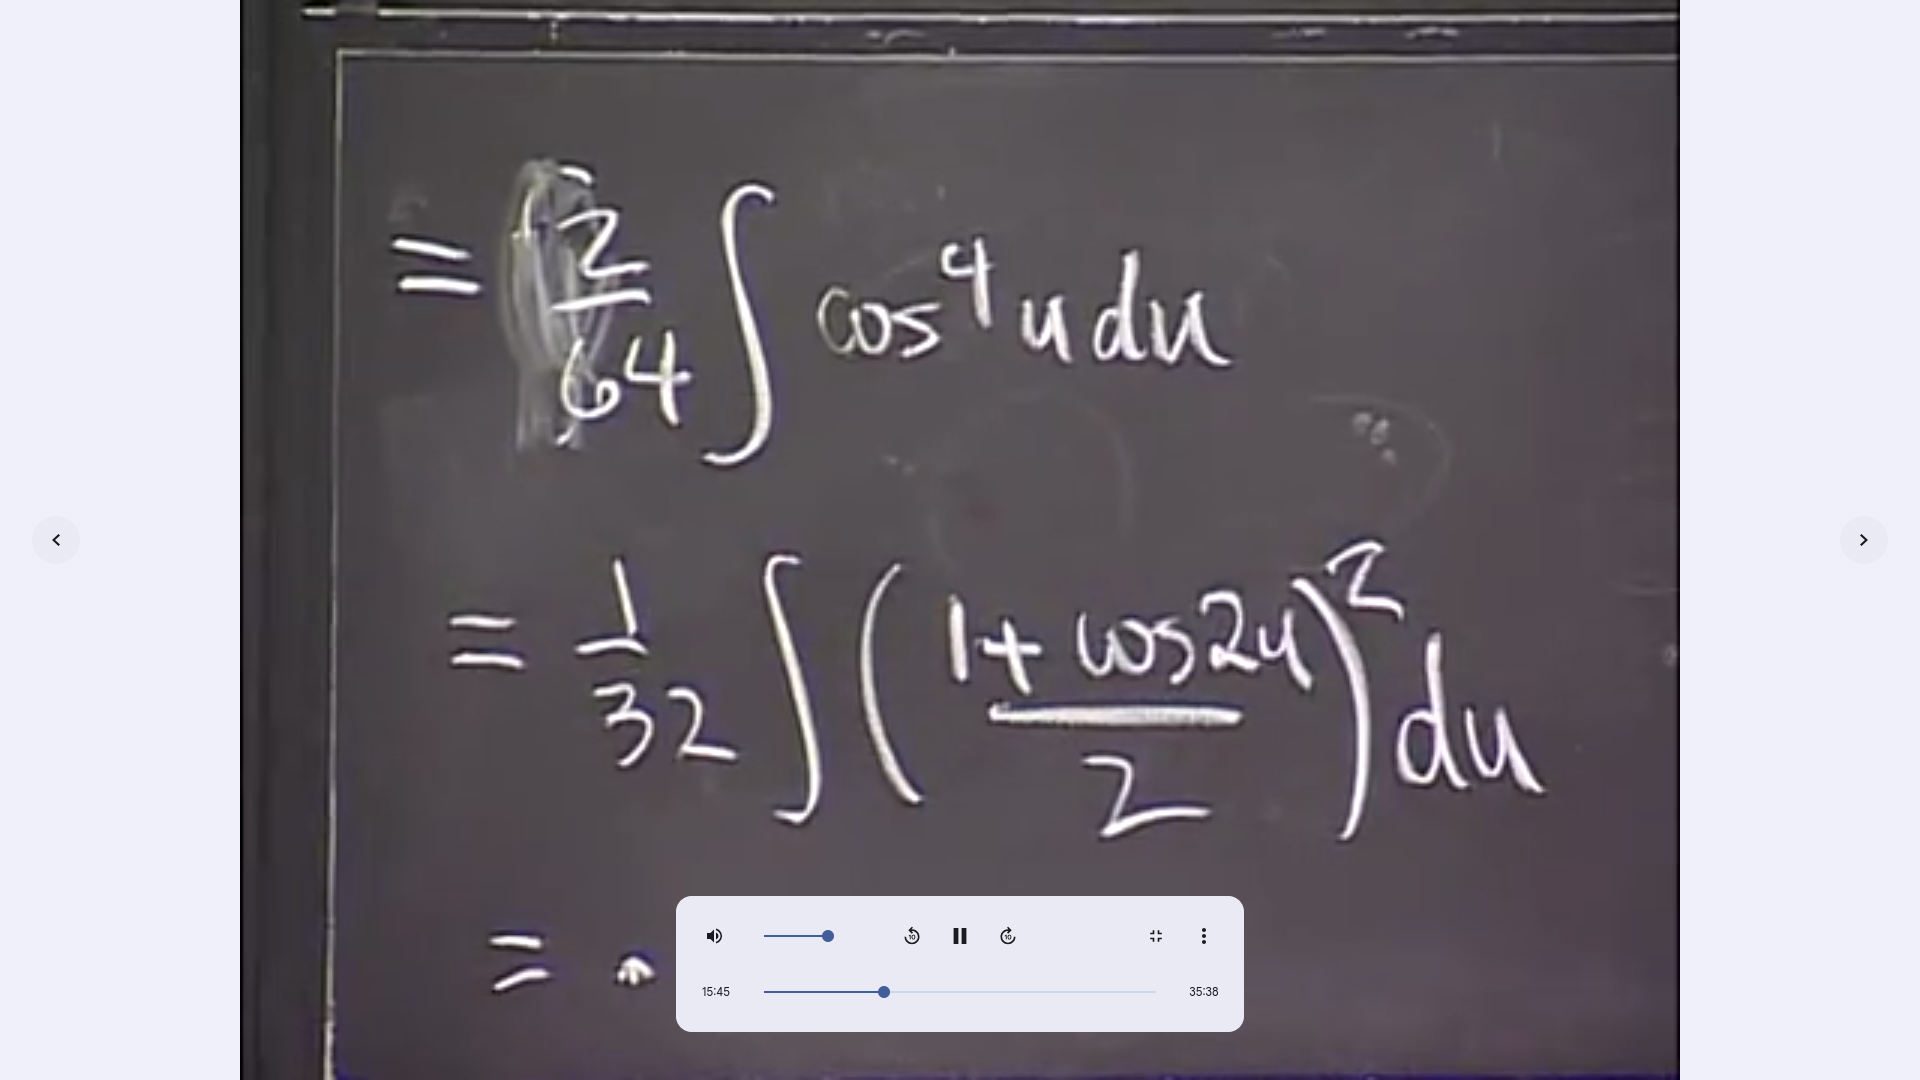 = 2/64 ∫ cos⁴ u du
= 1/32 ∫ ( (1 + cos 2u) / 2 )² du
=
10 10
15:45 35:38